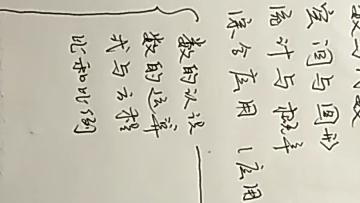 空间与图形
统计与概率
综合应用（应用
数的认识
数的运算
式与方程
比和比例